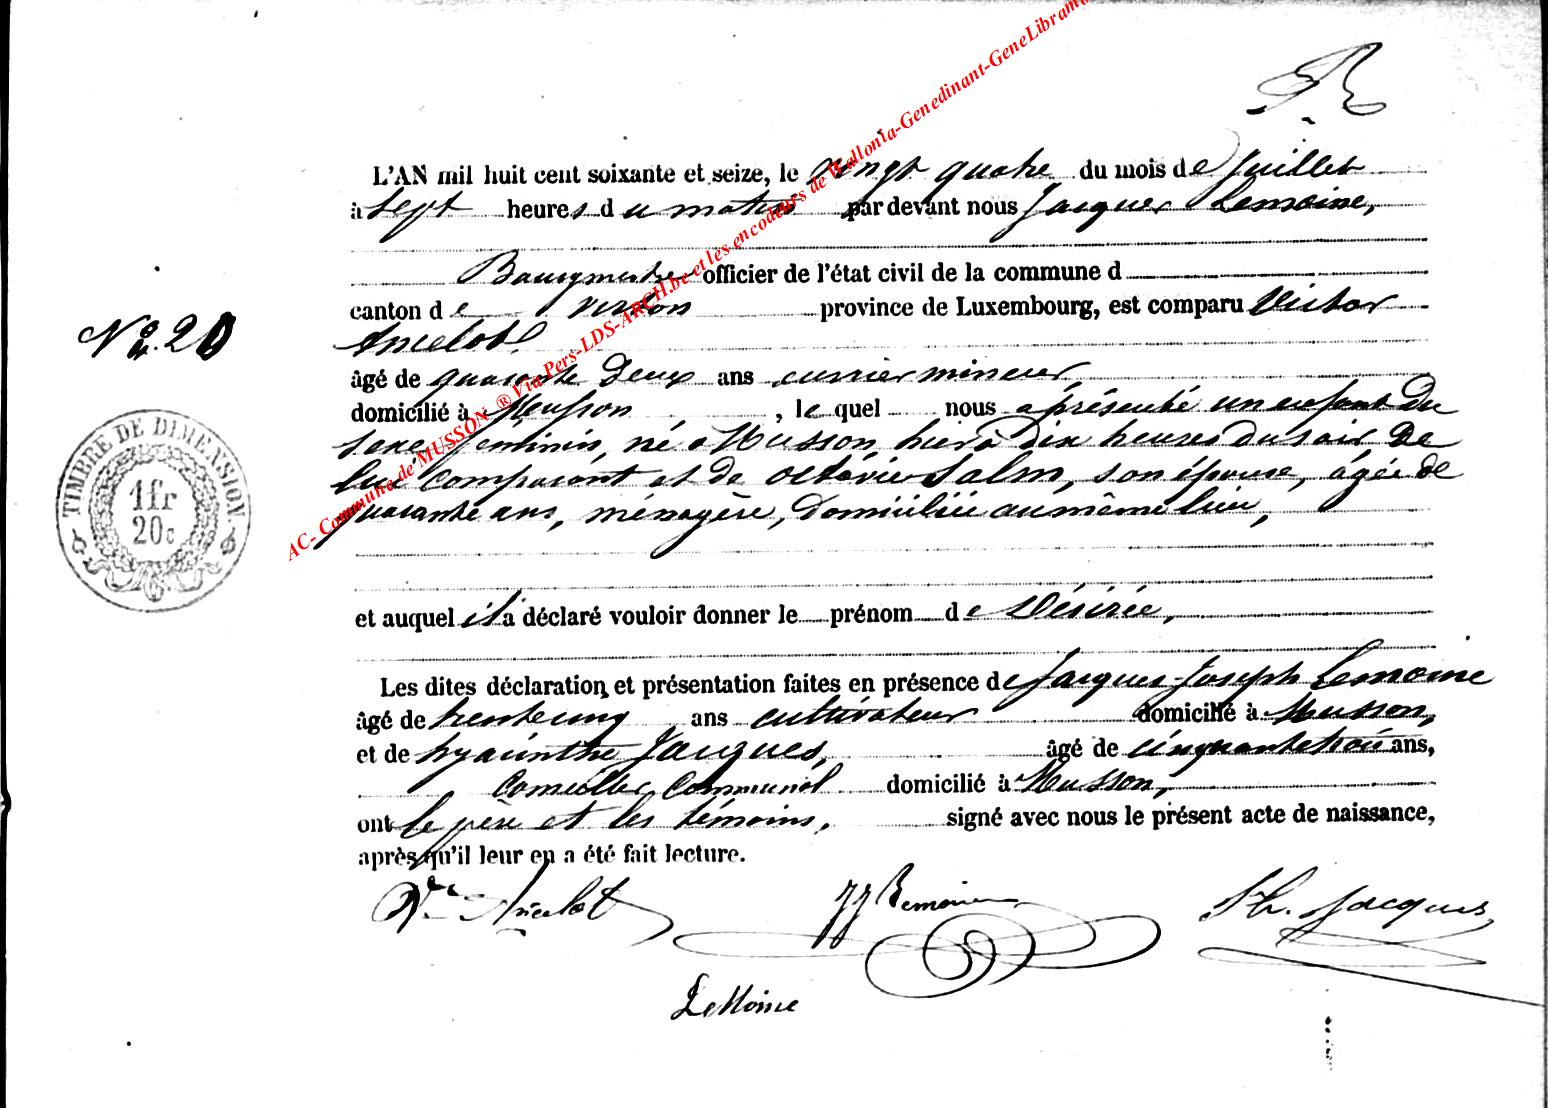 L'AN mil huit cent soixante et seize, le vingt quatre du mois de Juillet
à sept heures du matin par devant nous Jacques Lemoine,
Bourgmestre officier de l'état civil de la commune d
canton de Virton province de Luxembourg, est comparu Victor
Ancelot
âgé de quarante deux ans ouvrier mineur
domicilié à Musson, le quel nous a présenté un enfant du
sexe féminin, né à Musson, hier à dix heures du soir de
lui comparant et de octavie Salm, son épouse, âgée de
quarante ans, ménagère, domiciliée au même lieu,
et auquel il a déclaré vouloir donner le prénom de Désirée,
Les dites déclaration et présentation faites en présence de Jacques Joseph Lemoine
âgé de trente cinq ans cultivateur domicilié à Musson,
et de hyacinthe Jacques, âgé de cinquante trois ans,
Conseiller Communal domicilié à Musson,
ont le père et les témoins, signé avec nous le présent acte de naissance,
après qu'il leur en a été fait lecture.
Ancelot
JJ Lemoine
Jacques
LeMoine
No. 20
TIMBRE DE DIMENSION
1fr
20c
AC- Commune de MUSSON ® Via Pers-LDS-ARCH.be et les encodeurs de Wallonia-Genedinant-GeneLibramo